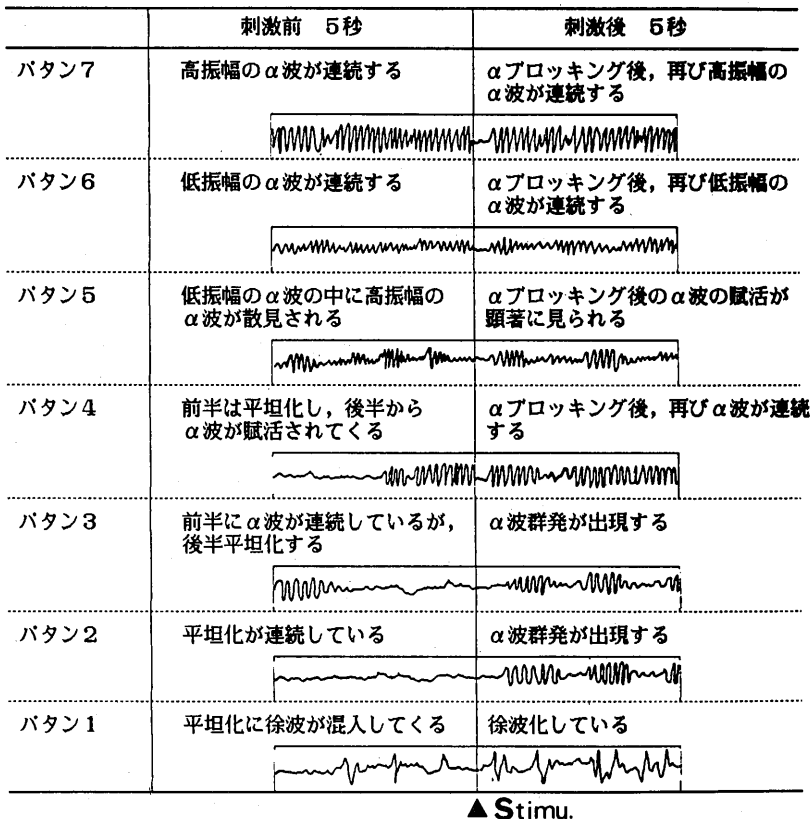 刺激前 5秒
刺激後 5秒
パタン7
高振幅のα波が連続する
αブロッキング後，再び高振幅の
α波が連続する
パタン6
低振幅のα波が連続する
αブロッキング後，再び低振幅の
α波が連続する
パタン5
低振幅のα波の中に高振幅の
α波が散見される
αブロッキング後のα波の賦活が
顕著に見られる
パタン4
前半は平坦化し，後半から
α波が賦活されてくる
αブロッキング後，再びα波が連続
する
パタン3
前半にα波が連続しているが，
後半平坦化する
α波群発が出現する
パタン2
平坦化が連続している
α波群発が出現する
パタン1
平坦化に徐波が混入してくる
徐波化している
▲ Stimu.